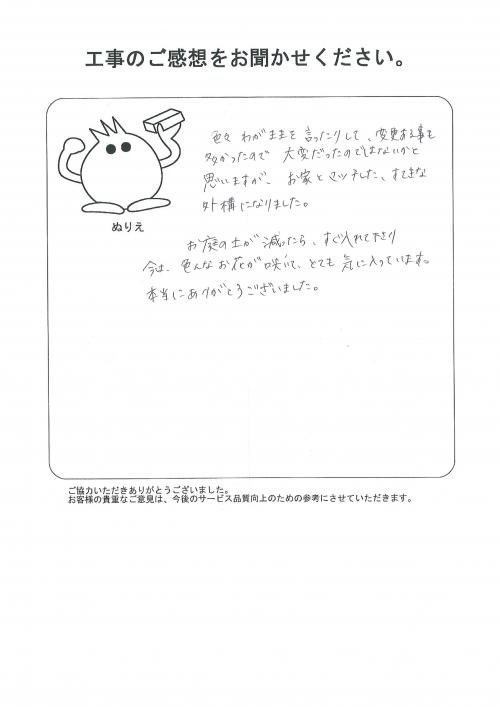 工事のご感想をお聞かせください。
色々わがままを言ったりして、変更する事も
多かったので 大変だったのではないかと
思いますが、お家とマッチした、すてきな
外構になりました。
ぬりえ
お庭の土が減ったら、すぐ入れて下さり
今は、色んなお花が咲いて、とても気に入っています。
本当にありがとうございました。
ご協力いただきありがとうございました。
お客様の貴重なご意見は、今後のサービス品質向上のための参考にさせていただきます。